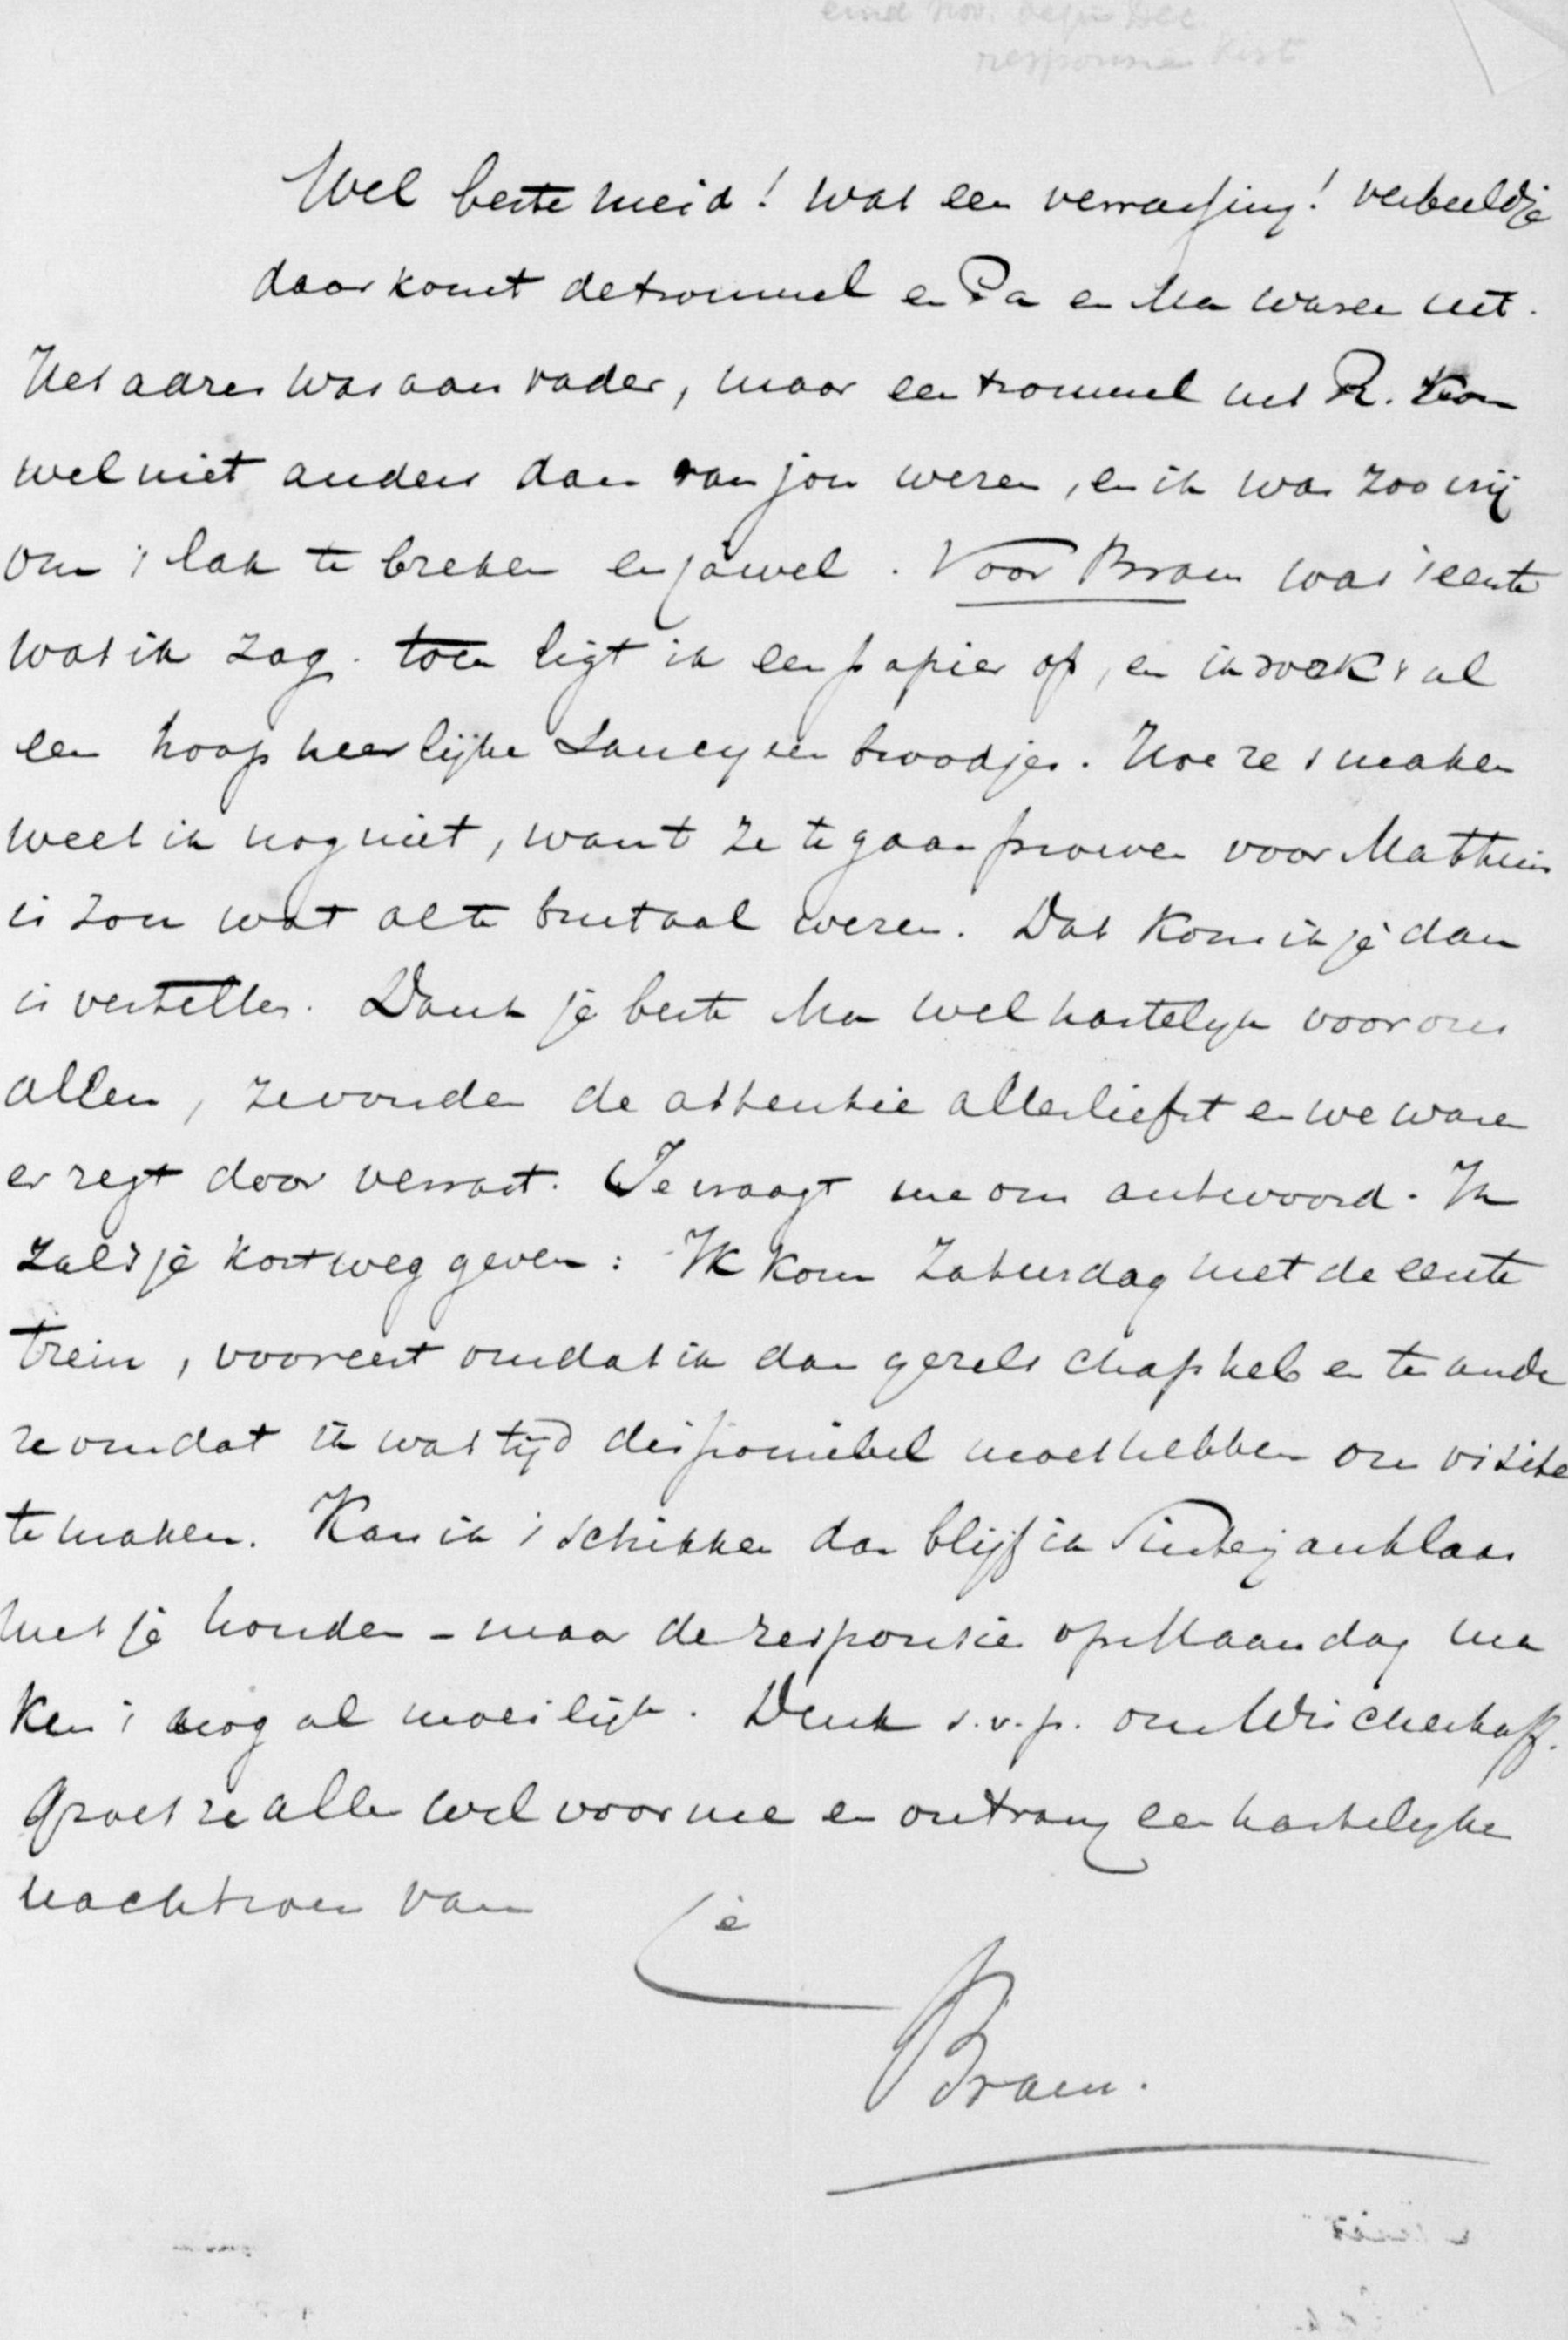 eind Nov. begin Dec
responsien Kist
Wel beste meid! Wat een verrassing! verbeeldje
daar komt de trommel en Pa en Ma waren uit.
Het adres was aan vader, maar een trommel uit R. kon
wel niet anders dan van jou wezen, en ik was zoo vrij
om 't lak te breken en jawel. Voor Bram was 't eerste
wat ik zag. toen ligt ik een papier op, en ik
een hoop heerlijke broodjes. Hoe ze smaken
weet ik nog niet, want ze te gaan proeven voor Matthuis
is zou wat al te brutaal wezen. Dat kom ik je dan
is vertellen. Dank je beste Ma wel hartelijk voor ons
allen, ze vonden de attentie allerliefst en we waren
er regt door verrast. Je vraagt me om antwoord. Ik
zal 't je kortweg geven: Ik kom Zaturdag met de eerste
trein, vooreerst omdat ik dan gezelschap heb en ten ande
re omdat ik wat tijd disponiebel moet hebben om visite
te maken. Kan ik 't schikken dan blijf ik Sinterjanklaas
met je houden - maar de responsie op Maandag ma
ken 't nog al moeilijk. Denk s.v.p. om Wichershoff.
Groet ze allen wel voor me en ontvang een hartelijke
nachtzoen van je
Bram.